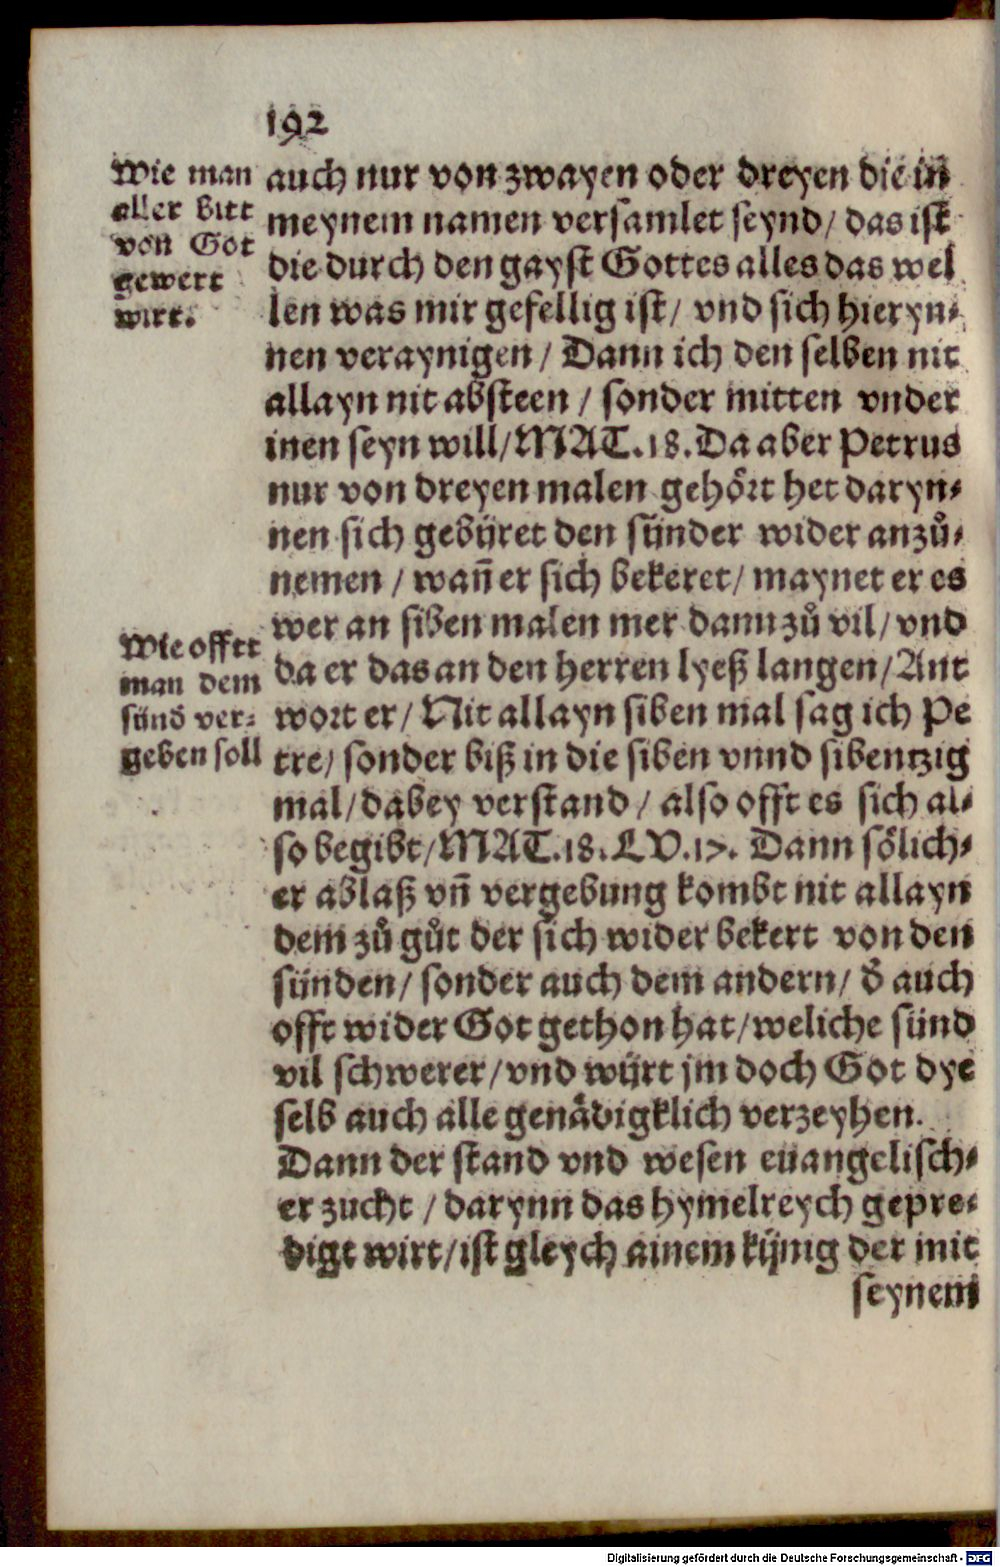 192
Wie man
aller bitt
von Got
gewert
wirt.
auch nur von zwayen oder dreyen die in
meynem namen versamlet seynd/ das ist
die durch den gayst Gottes alles das wel
len was mir gefellig ist/ vnd sich hieryn⸗
nen veraynigen / Dann ich den selben nit
allayn nit absteen / sonder mitten vnder
inen seyn will/MAT.18.Da aber Petrus
nur von dreyen malen gehört het daryn⸗
nen sich gebüret den sünder wider anzů⸗
nemen / wañ er sich bekeret/ maynet er es
wer an siben malen mer dann zů vil/ vnd
da er das an den herren lyeß langen/Ant
wort er/ Nit allayn siben mal sag ich Pe
tre/ sonder biß in die siben vnnd sibentzig
mal/dabey verstand / also offt es sich al⸗
so begibt/MAT.18.LV.17. Dann sölich⸗
er ablaß vñ vergebung kombt nit allayn
dem zů gůt der sich wider bekert von den
sünden/ sonder auch dem andern/ d̕ auch
offt wider Got gethon hat/weliche sünd
vil schwerer/vnd würt jm doch Got dye
selb auch alle genädigklich verzeyhen.
Dann der stand vnd wesen euangelisch⸗
er zucht / darynn das hymelreych gepre⸗
digt wirt/ist gleych ainem künig der mit
seynem
Wie offtt
man dem
sünd ver⸗
geben soll
Digitalisierung gefördert durch die Deutsche Forschungsgemeinschaft - DFG